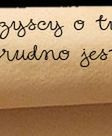 zyscy o t
rudno jes